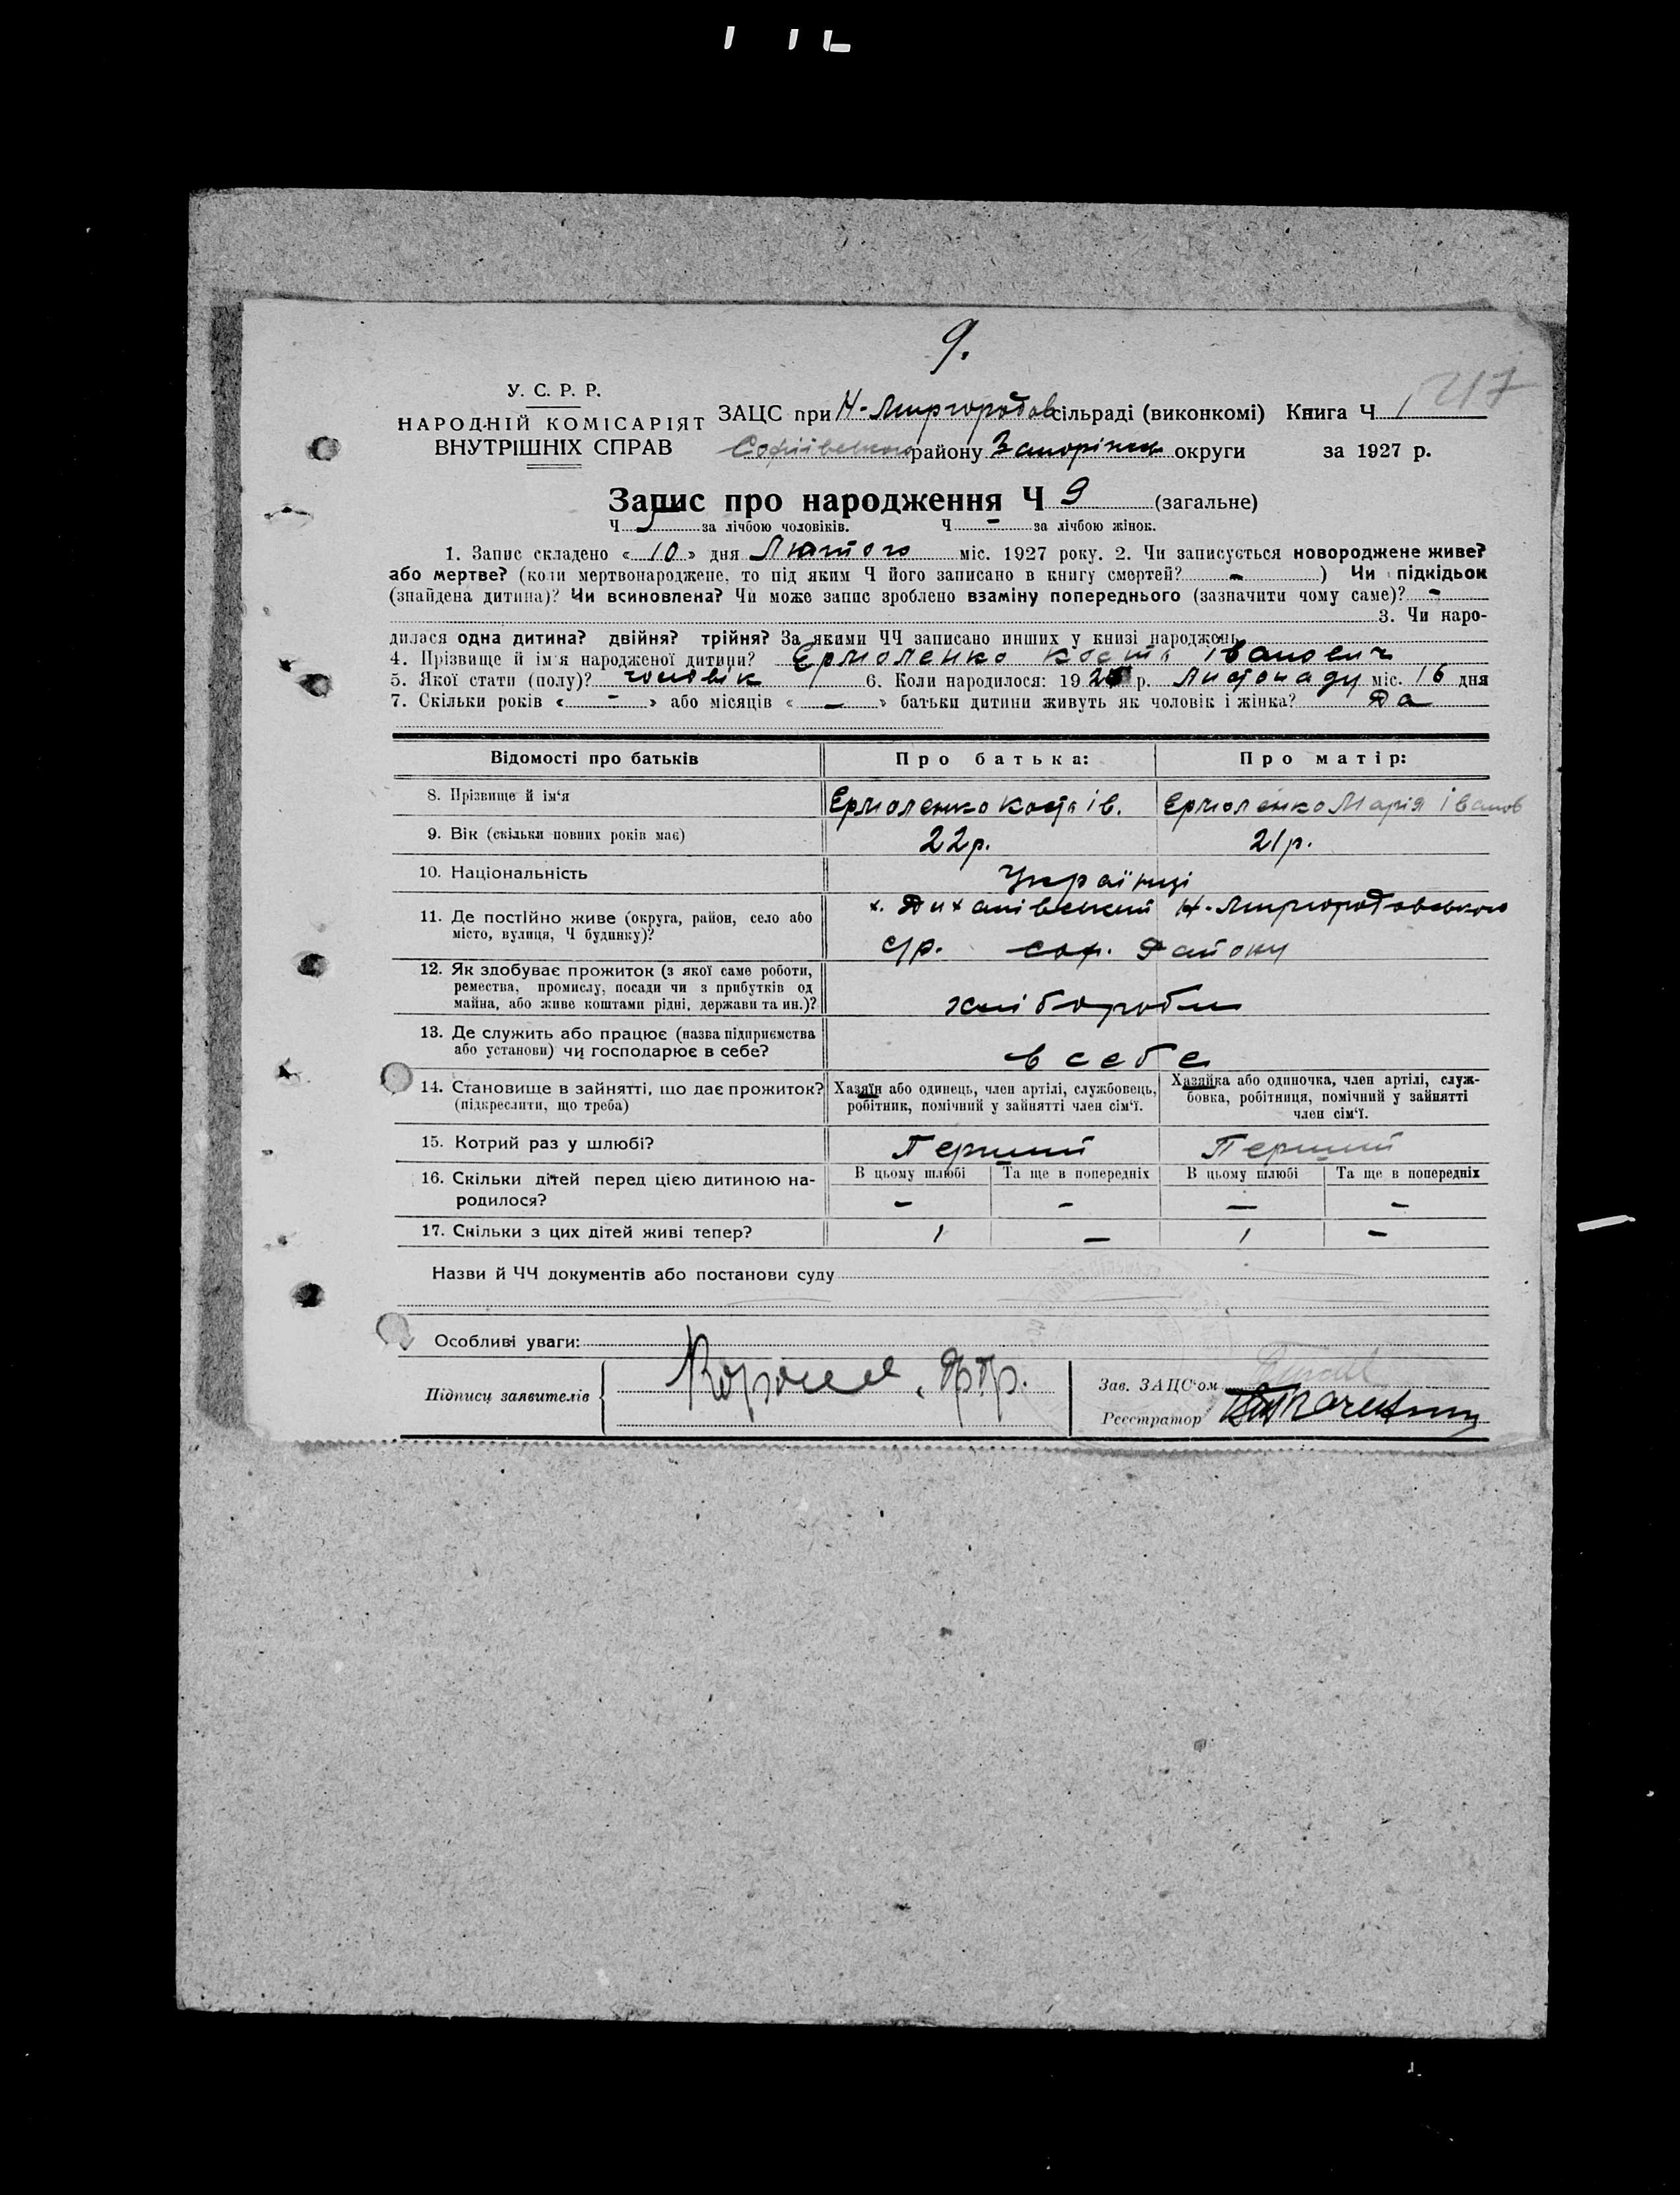 9.
У. С. Р. Р.
НАРОДНІЙ КОМІСАРІЯТ
ВНУТРІШНІХ СПРАВ
ЗАЦС при Н-Миргородов сільраді (виконкомі) Книга Ч 217
Софіївського району Запоріжск округи за 1927 р.
Запис про народження Ч 9 (загальне)
Ч 5 за лічбою чоловіків. Ч - за лічбою жінок.
1. Запис складено « 10 » дня Лютого міс. 1927 року. 2. Чи записується новороджене живе?
або мертве? (коли мертвонароджене, то під яким Ч його записано в книгу смертей? - ) Чи підкідьок
(знайдена дитина)? Чи всиновлена? Чи може запис зроблено взаміну попереднього (зазначити чому саме)? -
3. Чи наро-
дилася одна дитина? двійня? трійня? За якими ЧЧ записано инших у книзі народжень
4. Прізвище й ім'я народженої дитини? Ермоленко Костя Іванович
5. Якої стати (полу)? чоловік 6. Коли народилося: 192 р. Листопаду міс. 16 дня
7. Скільки років « - » або місяців « - » батьки дитини живуть як чоловік і жінка? Да
Відомості про батьків Про батька: Про матір:
8. Прізвище й ім'я Ермоленко Костя Ів. Ермоленко Марія Іванов
9. Вік (скільки повних років має) 22р. 21р.
10. Національність Українці
11. Де постійно живе (округа, район, село або місто, вулиця, Ч будинку)? х. Н-Миргородовського
с/р. соф. Району
12. Як здобуває прожиток (з якої саме роботи, ремества, промислу, посади чи з прибутків од майна, або живе коштами рідні, держави та ин.)? хлібороби
13. Де служить або працює (назва підприємства або установи) чи господарює в себе? в себе
14. Становище в зайнятті, що дає прожиток? (підкреслити, що треба) Хазяїн або одинець, член артілі, службовець, робітник, помічний у зайнятті член сім'ї. Хазяйка або одиночка, член артілі, служ-бовка, робітниця, помічний у зайнятті член сім'ї.
15. Котрий раз у шлюбі? Перший Перший
16. Скільки дітей перед цією дитиною на-родилося? В цьому шлюбі Та ще в попередніх В цьому шлюбі Та ще в попередніх
- - - -
17. Скільки з цих дітей живі тепер? 1 - 1 -
Назви й ЧЧ документів або постанови суду
Особливі уваги:
Підписи заявителів
Зав. ЗАЦС'ом
Реєстратор